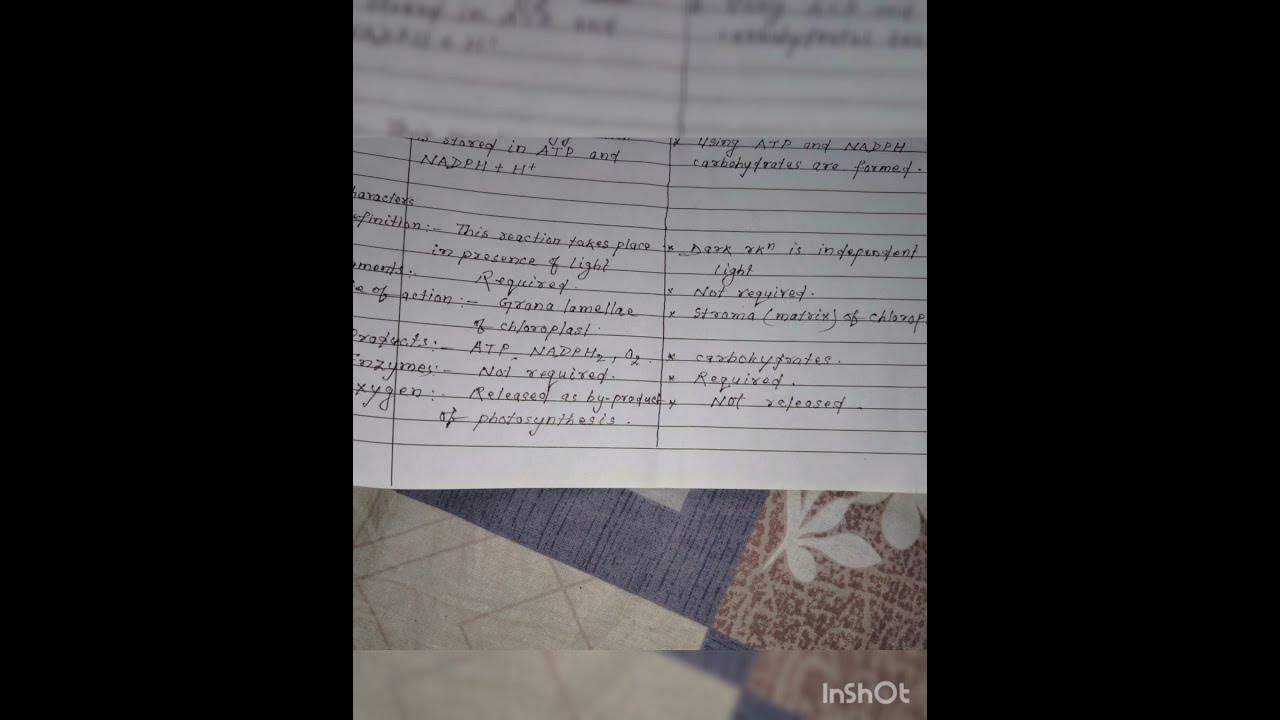 is stored in ATP and
NADPH + H+
* Using ATP and NADPH
carbohydrates are formed.
haracters
efinition:- This reaction takes place
in presence of light
* Dark rxn is independent
light
ments:- Required.
* Not required.
e of action:- Grana lamellae
of chloroplast.
* Stroma (matrix) of chlorop
Products:- ATP, NADPH2, O2.
* carbohydrates.
Enzymes:- Not required.
* Required.
xygen:- Released as by-product
of photosynthesis.
* Not released.
InShOt